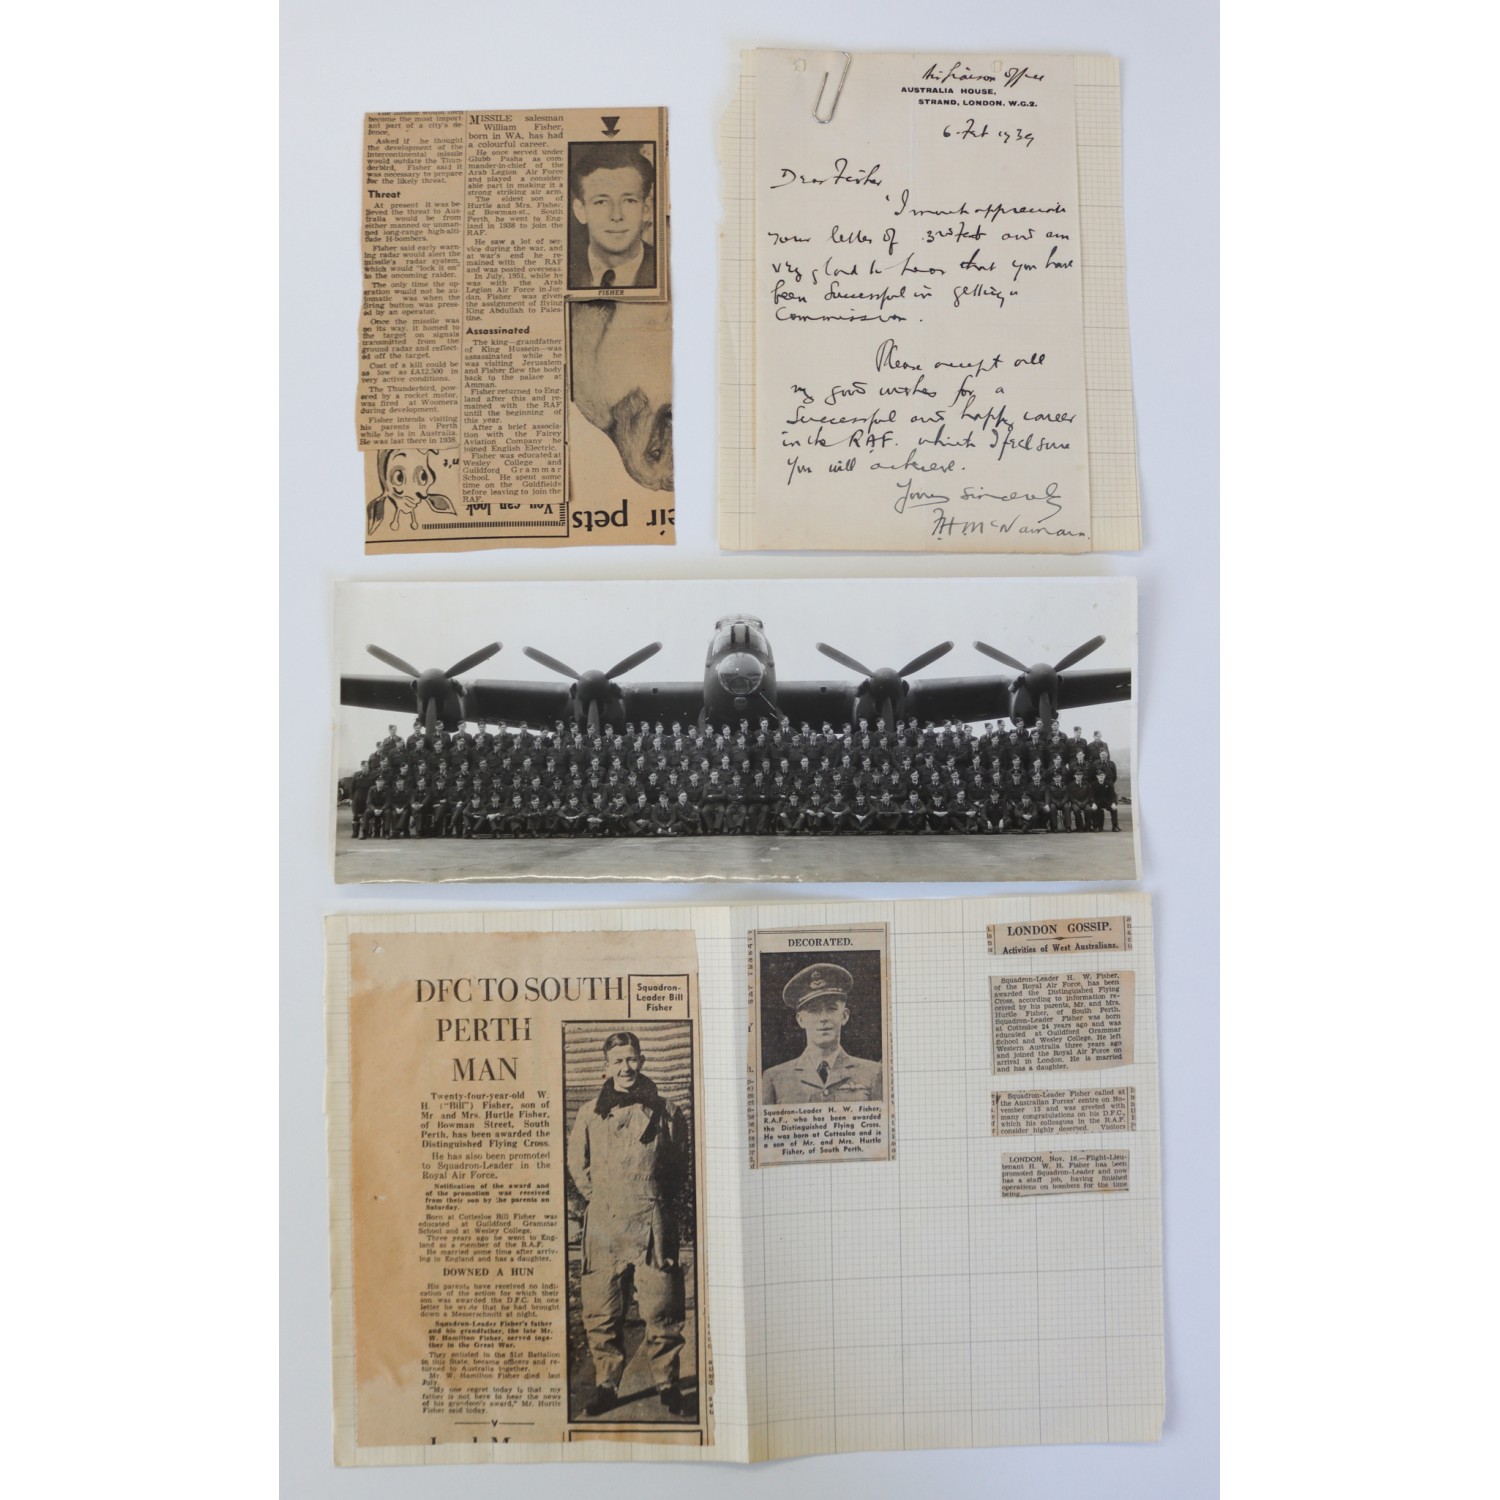 become the most import-
ant part of a city's de-
fence.
Asked if he thought
the development of the
intercontinental missile
would outdate the Thun-
derbird, Fisher said it
was necessary to prepare
for the likely threat.
Threat
At present it was be-
lieved the threat to Aus-
tralia would be from
either manned or unman-
ned long-range high-alti-
tude H-bombers.
Fisher said early warn-
ing radar would alert the
missile's radar system,
which would "lock it on"
to the oncoming raider.
The only time the op-
eration would not be au-
tomatic was when the
firing button was press-
ed by an operator.
Once the missile was
on its way, it homed to
the target on signals
transmitted from the
ground radar and reflect-
ed off the target.
Cost of a kill could be
as low as £A12,500 in
very active conditions.
The Thunderbird, pow-
ered by a rocket motor,
was fired at Woomera
during development.
Fisher intends visiting
his parents in Perth
while he is in Australia.
He was last there in 1938.
MISSILE salesman
William Fisher,
born in WA, has had
a colourful career.
He once served under
Glubb Pasha as com-
mander-in-chief of the
Arab Legion Air Force
and played a consider-
able part in making it a
strong striking air arm.
The eldest son of
Hurtle and Mrs. Fisher,
of Bowman-st., South
Perth, he went to Eng-
land in 1938 to join the
RAF.
He saw a lot of ser-
vice during the war, and
at war's end he re-
mained with the RAF
and was posted overseas.
In July, 1951, while he
was with the Arab
Legion Air Force in Jor-
dan, Fisher was given
the assignment of flying
King Abdullah to Pales-
tine.
Assassinated
The king—grandfather
of King Hussein—was
assassinated while he
was visiting Jerusalem
and Fisher flew the body
back to the palace at
Amman.
Fisher returned to Eng-
land after this and re-
mained with the RAF
until the beginning of
this year.
After a brief associa-
tion with the Fairey
Aviation Company he
joined English Electric.
Fisher was educated at
Wesley College and
Guildford Grammar
School. He spent some
time on the Goldfields
before leaving to join the
RAF.
FISHER
You can look
eir pets
Air Liaison Office
AUSTRALIA HOUSE,
STRAND, LONDON, W.C.2.
6 Feb 1939
Dear Fisher
I much appreciate
your letter of 3rd Feb and am
very glad to hear that you have
been successful in getting a
Commission.
Please accept all
my good wishes for a
successful and happy career
in the R.A.F. which I feel sure
you will achieve.
Yours sincerely
F.H. McNamara.
DFC TO SOUTH
PERTH
MAN
Squadron-
Leader Bill
Fisher
Twenty-four-year-old W.
H. ("Bill") Fisher, son of
Mr. and Mrs. Hurtle Fisher,
of Bowman Street, South
Perth, has been awarded the
Distinguished Flying Cross.
He has also been promoted
to Squadron-Leader in the
Royal Air Force.
Notification of the award and
of the promotion was received
from their son by the parents on
Saturday.
Born at Cottesloe Bill Fisher was
educated at Guildford Grammar
School and at Wesley College.
Three years ago he went to Eng-
land as a member of the R.A.F.
He married some time after arriv-
ing in England and has a daughter.
DOWNED A HUN
His parents have received no indi-
cation of the action for which their
son was awarded the D.F.C. In one
letter he wrote that he had brought
down a Messerschmitt at night.
Squadron-Leader Fisher's father
and his grandfather, the late Mr.
W. Hamilton Fisher, served toge-
ther in the Great War.
They enlisted in the 51st Battalion
in this State, became officers and re-
turned to Australia together.
Mr. W. Hamilton Fisher died last
July.
"My one regret today is that my
father is not here to hear the news
of his grandson's award," Mr. Hurtle
Fisher said today.
DECORATED.
Squadron-Leader H. W. Fisher,
R.A.F., who has been awarded
the Distinguished Flying Cross.
He was born at Cottesloe and is
a son of Mr. and Mrs. Hurtle
Fisher, of South Perth.
LONDON GOSSIP.
Activities of West Australians.
Squadron-Leader H. W. Fisher,
of the Royal Air Force, has been
awarded the Distinguished Flying
Cross, according to information re-
ceived by his parents, Mr. and Mrs.
Hurtle Fisher, of South Perth.
Squadron-Leader Fisher was born
at Cottesloe 24 years ago and was
educated at Guildford Grammar
School and Wesley College. He left
Western Australia three years ago
and joined the Royal Air Force on
arrival in London. He is married
and has a daughter.
Squadron-Leader Fisher called at
the Australian Forces' centre on No-
vember 15 and was greeted with
many congratulations on his D.F.C.,
which his colleagues in the R.A.F.
consider highly deserved. Visitors
LONDON, Nov. 16.—Flight-Lieu-
tenant H. W. H. Fisher has been
promoted Squadron-Leader and now
has a staff job, having finished
operations on bombers for the time
being.